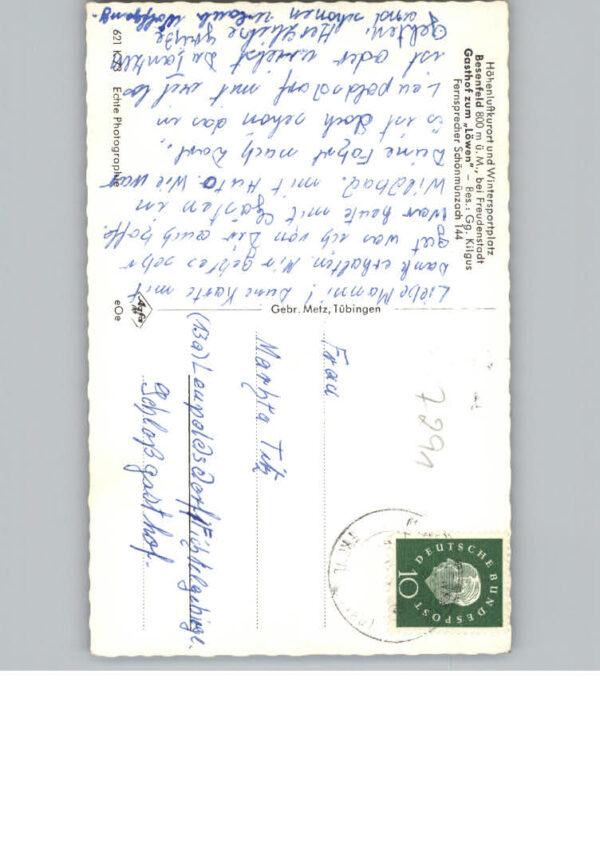 Höhenluftkurort und Wintersportplatz
Besenfeld 800 m ü. M., bei Freudenstadt
Gasthof zum „Löwen" – Bes.: Gg. Kilgus
Fernsprecher Schönmünzach 144
Liebe Mammi! Deine Karte mit
Dank erhalten. Mir geht es sehr
gut was ich von Dir auch hoffe.
War heute mit Gästen in
Wildbad. mit Auto. Wie war
Deine Fahrt nach Dort.
Es ist doch schon das in
Leupoldsdorf mit
ist oder
Gehten. Herzliche Grüße
und schönen urlaub Wolfgang.
621 K 73 Echte Photographie
Gebr. Metz, Tübingen
Agfa
eOe
7291
Frau
Martha Titz
(13a) Leupoldsdorf/Fichtelgebirge.
Schloßgasthof.
DEUTSCHE BUNDESPOST
10